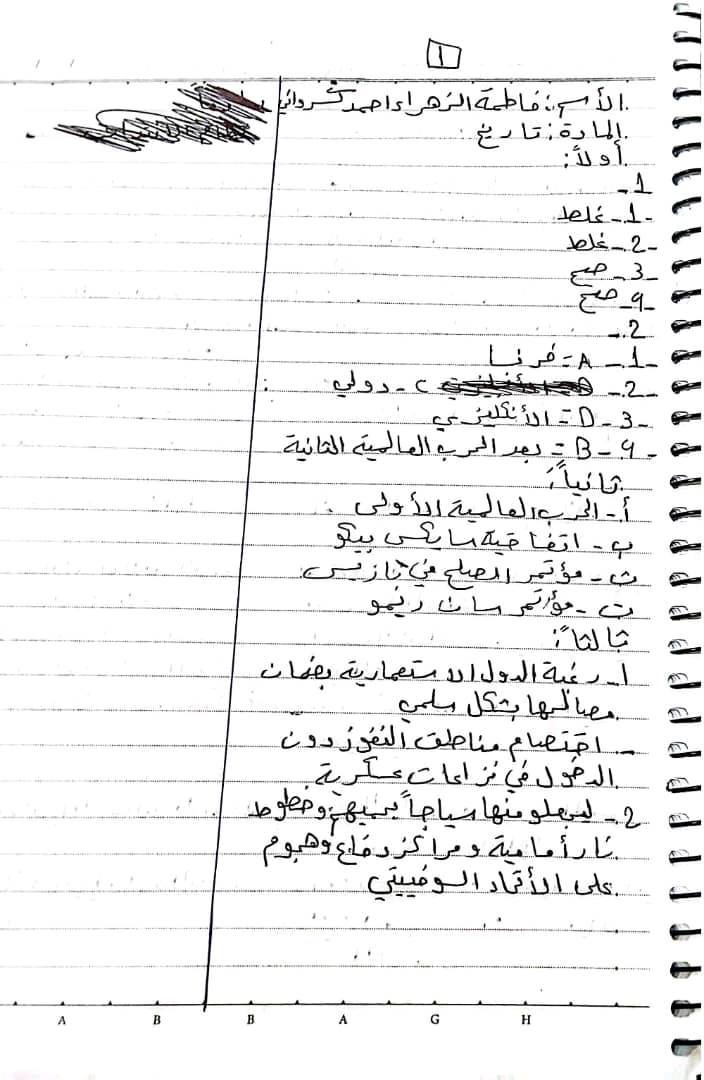 1
الأسم: فاطمة الزهراء احمد كسرواني
المادة: تاريخ
أولاً:
1-
1- غلط
2- غلط
3- صح
4- صح
2-
1- A = فرنسا
2- C - دولي
3- D = الأنكليزي
4- B = بعد الحرب العالمية الثانية
ثانياً:
أ- الحرب العالمية الأولى
ب- اتفاقية سايكس بيكو
ث- مؤتمر الصلح في باريس
ت- مؤتمر سان ريمو
ثالثاً:
1- رغبة الدول الاستعمارية بضمان
مصالحها بشكل سلمي
- اختصام مناطق النفوز دون
الدخول في نزاعات عسكرية
2- ليجعلو منها سياجاً يحميهم وخطوط
نار أمامية ومراكز دفاع وهجوم
على الأتحاد السوفييتي
A B B A G H